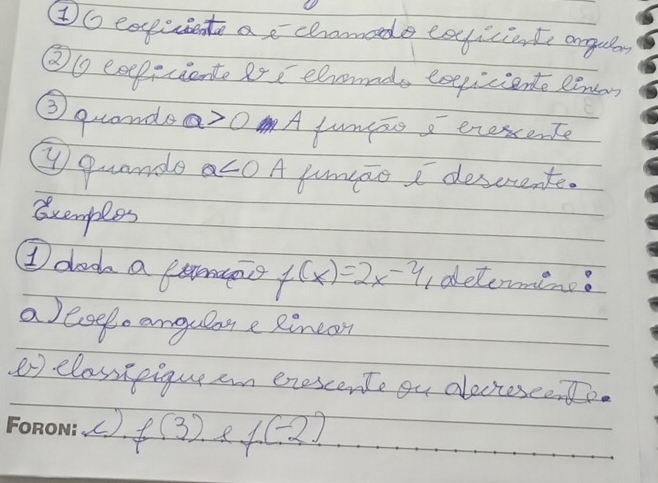 ① O coeficiente a é chamado coeficiente angular
② O coeficiente b é chamado coeficiente linear
③ quando a>0 A função é crescente
④ quando a<0 A função é descrente.
Exemplos
① dada a função f(x)=2x-4, determine:
a) coef. angular e linear
b) classifique em crescente ou decrescente.
FORONI c) f(3) e f(-2)